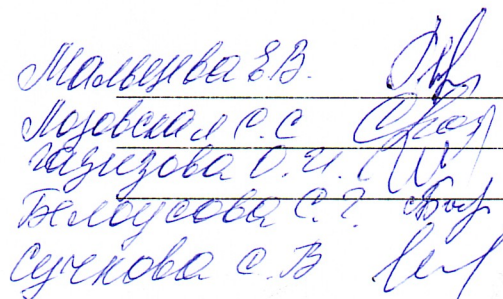 Мальцева Е.В.
Лозовская С.С
Газизова О.И.
Белоусова С.Г.
Сучкова С.В